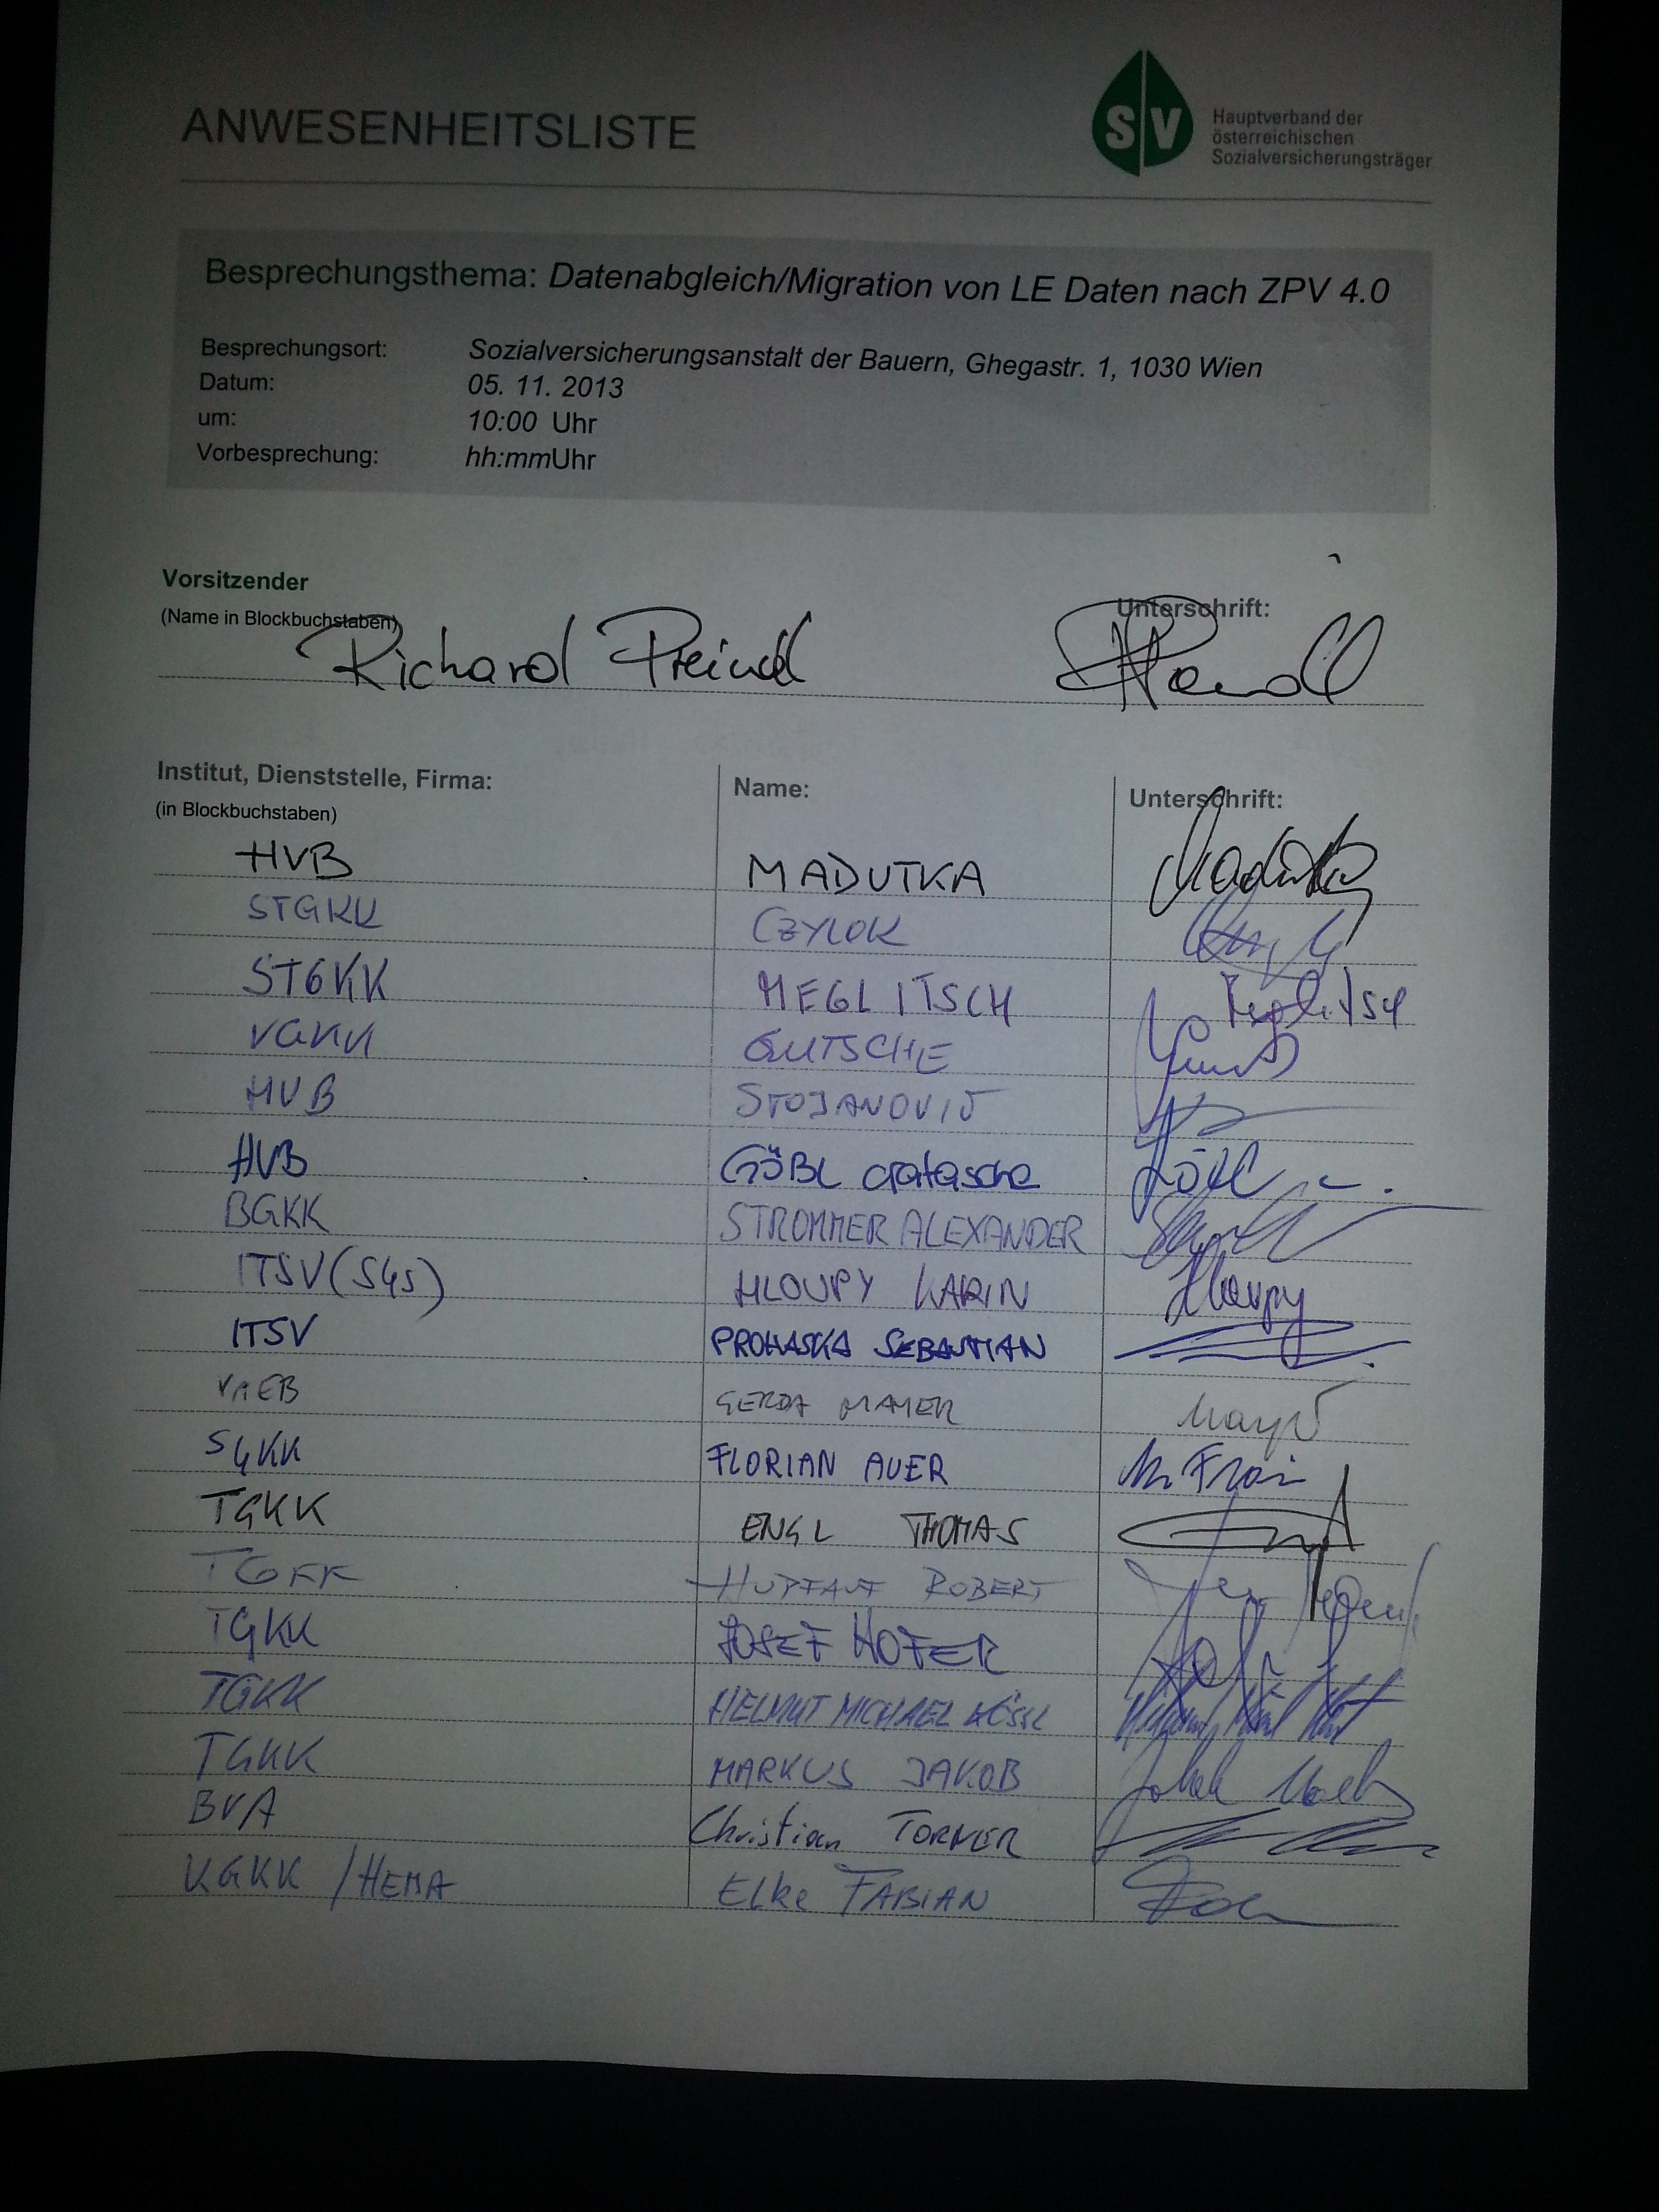 ANWESENHEITSLISTE
SV
Hauptverband der
österreichischen
Sozialversicherungsträger
Besprechungsthema: Datenabgleich/Migration von LE Daten nach ZPV 4.0
Besprechungsort: Sozialversicherungsanstalt der Bauern, Ghegastr. 1, 1030 Wien
Datum: 05. 11. 2013
um: 10:00 Uhr
Vorbesprechung: hh:mmUhr
Vorsitzender
(Name in Blockbuchstaben) Unterschrift:
Richard Preindl
Institut, Dienststelle, Firma: Name: Unterschrift:
(in Blockbuchstaben)
HVB MADUTKA Madutka
STGKK CZYLOK
STGKK MEGLITSCH Meglitsch
VGKK GUTSCHE
HVB STOJANOVIC
HVB GÖBL
BGKK STROMMER ALEXANDER
ITSV (SGS) HLOUPY KARIN Hloupy
ITSV PROHASKA SEBASTIAN
VAEB GERDA MAYER Mayer
SGKK FLORIAN AUER
TGKK ENGL THOMAS
TGKK HUPFAUF ROBERT
TGKK JOSEF HOFER
TGKK HELMUT MICHAEL KÖSSL
TGKK MARKUS JAKOB
BVA Christian TORNER
KGKK /HEMA Elke FABIAN